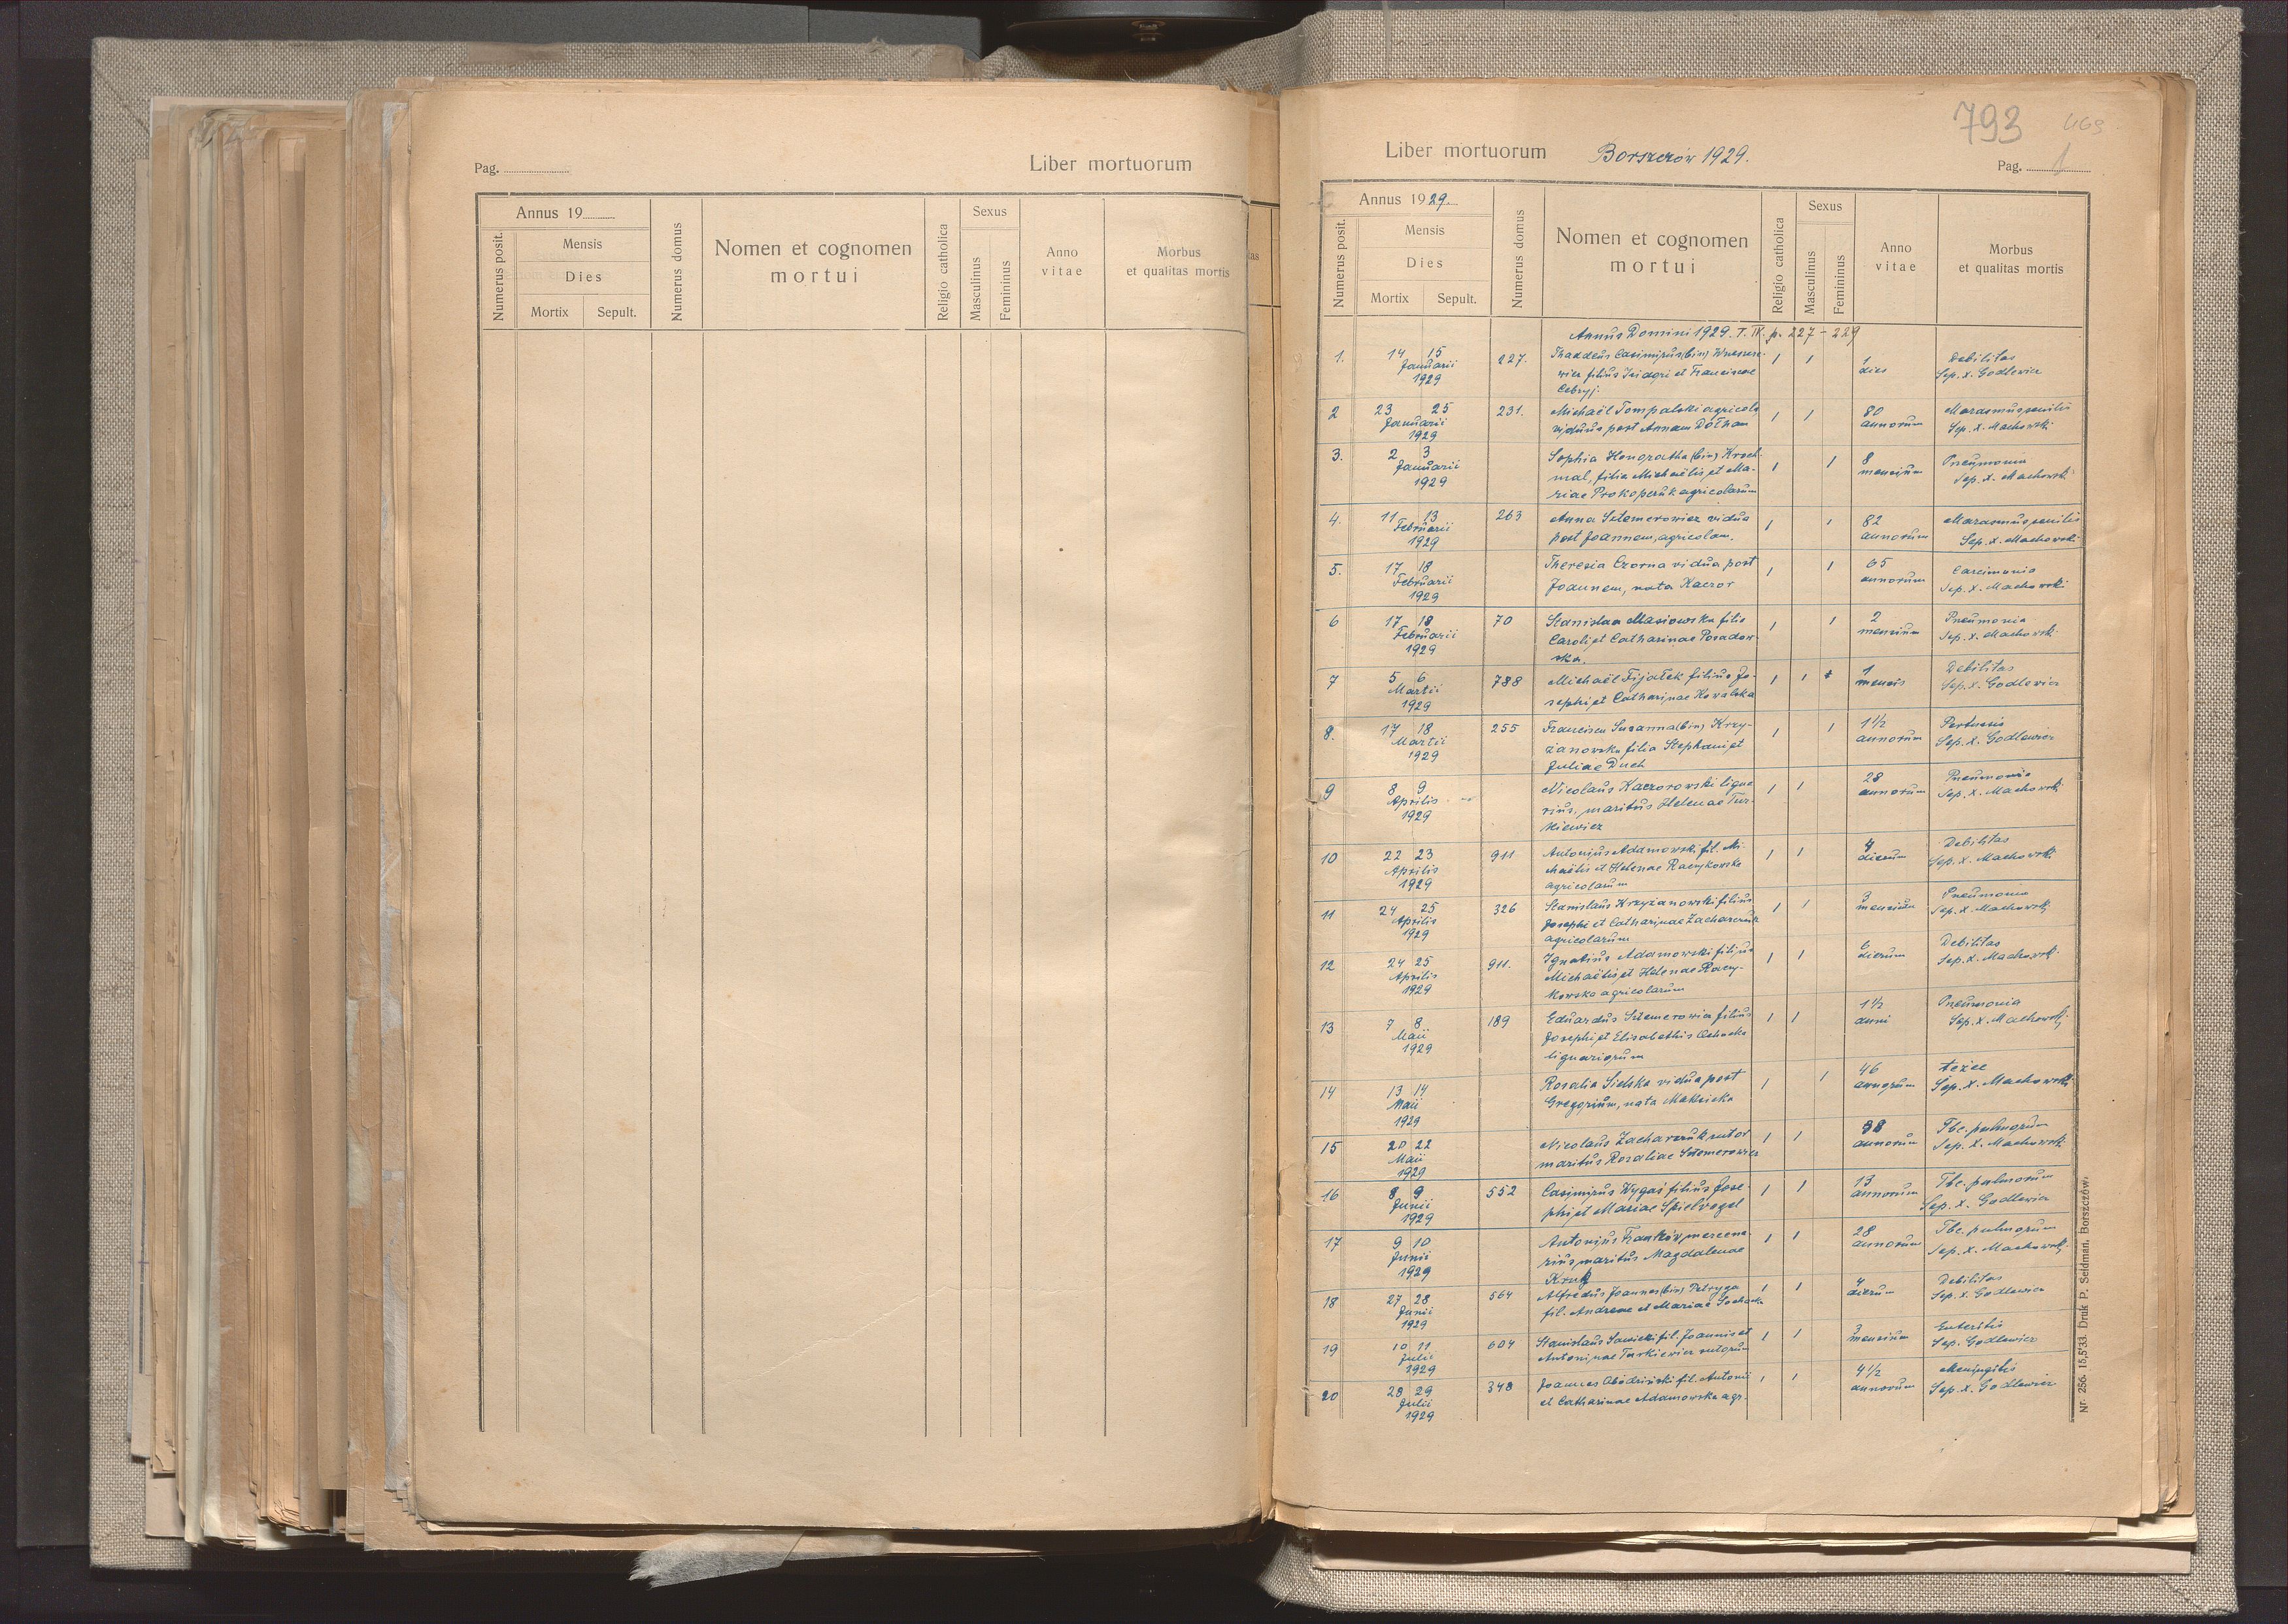 Pag.
Liber mortuorum
Annus 19
Mensis
Dies
Mortix Sepult.
Numerus posit.
Numerus domus
Nomen et cognomen
mortui
Religio catholica
Sexus
Masculinus
Femininus
Anno
vitae
Morbus
et qualitas mortis
793
469
Liber mortuorum Borszczów 1929.
Pag. 1
Annus 1929.
Mensis
Dies
Mortix Sepult.
Numerus posit.
Numerus domus
Nomen et cognomen
mortui
Religio catholica
Sexus
Masculinus
Femininus
Anno
vitae
Morbus
et qualitas mortis
Annus Domini 1929. T. IX. p. 227 - 229
1. 14 15 227. Thaddeus Casimirus (bin) 1 1 1 Debilitas
Januarii wicz filius Isidori et Franciscae dies Sep. X. Godlewicz
1929 Cebryj.
2 23 25 231. Michaël Tompalski agricola 1 1 80 Marasmus senilis
Januarii viduus post Annam Dółhan annorum Sep. X. Machowski
1929
3. 2 3 Sophia Honoratha (bin) Kroch- 1 1 8 Pneumonia
Januarii mal, filia Michaëlis et Ma- mensium Sep. X. Machowski
1929 riae Prokopczuk agricolarum
4. 11 13 263 Anna Sztemerowicz vidua 1 1 82 Marasmus senilis
Februarii post Joannem, agricolam. annorum Sep. X. Machowski
1929
5. 17 18 Theresia Czorna vidua post 1 1 65 Carcimonia
Februarii Joannem, nata Kaczor annorum Sep. X. Machowski
1929
6 17 18 70 Stanislaa Masiowska filia 1 1 2 Pneumonia
Februarii Caroli et Catharinae Posadow- mensium Sep. X. Machowski
1929 ska.
7 5 6 788 Michaël Fijałek filius Jo- 1 1 1 Debilitas
Martii sephi et Catharinae Kowalska mensis Sep. X. Godlewicz
1929
8. 17 18 255 Francisca Susanna (bin) Krzy- 1 1 1½ Pertussis
Martii żanowska filia Stephani et annorum Sep. X. Godlewicz
1929 Juliae Duch
9 8 9 Nicolaus Kaczorowski ligna- 1 1 28 Pneumonia
Aprilis rius, maritus Helenae Tur- annorum Sep. X. Machowski
1929 kiewicz
10 22 23 911 Antonius Adamowski fil. Mi- 1 1 4 Debilitas
Aprilis chaëlis et Helenae Raczykowska dierum Sep. X. Machowski
1929 agricolarum
11 24 25 326 Stanislaus Krzyżanowski filius 1 1 3 Pneumonia
Aprilis Josephi et Catharinae Zacharczuk mensium Sep. X. Machowski
1929 agricolarum
12 24 25 911. Ignatius Adamowski filius 1 1 6 Debilitas
Aprilis Michaëlis et Helenae Raczy- dierum Sep. X. Machowski
1929 kowska agricolarum
13 7 8 189 Eduardus Sztemerowicz filius 1 1 1½ Pneumonia
Maii Josephi et Elisabethis anni Sep. X. Machowski
1929 lignariorum
14 13 14 Rosalia Sielska vidua post 1 1 46 tężec
Maii Gregorium, nata annorum Sep. X. Machowski
1929
15 20 22 Nicolaus Zacharczuk sutor 1 1 38 Tbc. pulmorum
Maii maritus Rozaliae Sztemerowicz annorum Sep. X. Machowski
1929
16 8 9 552 Casimirus Wygaś filius Jose- 1 1 13 Tbc. pulmorum
Junii phi et Mariae Spielvogel annorum Sep. X. Godlewicz
1929
17 9 10 Antonius Franków mercena- 1 1 28 Tbc. pulmorum
Junii rius maritus Magdalenae annorum Sep. X. Machowski
1929 Kruk
18 27 28 564 Alfredus Joannes (bin) Petryga 1 1 4 Debilitas
Junii fil. Andreae et Mariae Sochacka dierum Sep. X. Godlewicz
1929
19 10 11 604 Stanislaus Sawicki fil. Joannis et 1 1 3 Enteritis
Julii Antoninae Turkiewicz sutorum mensium Sep. Godlewicz
1929
20 28 29 348 Joannes fil. Antonii 1 1 4½ Meningitis
Julii et Catharinae Adamowska agr. annorum Sep. X. Godlewicz
1929
Nr. 256. 15,5'33. Druk P. Seidman, Borszczów.